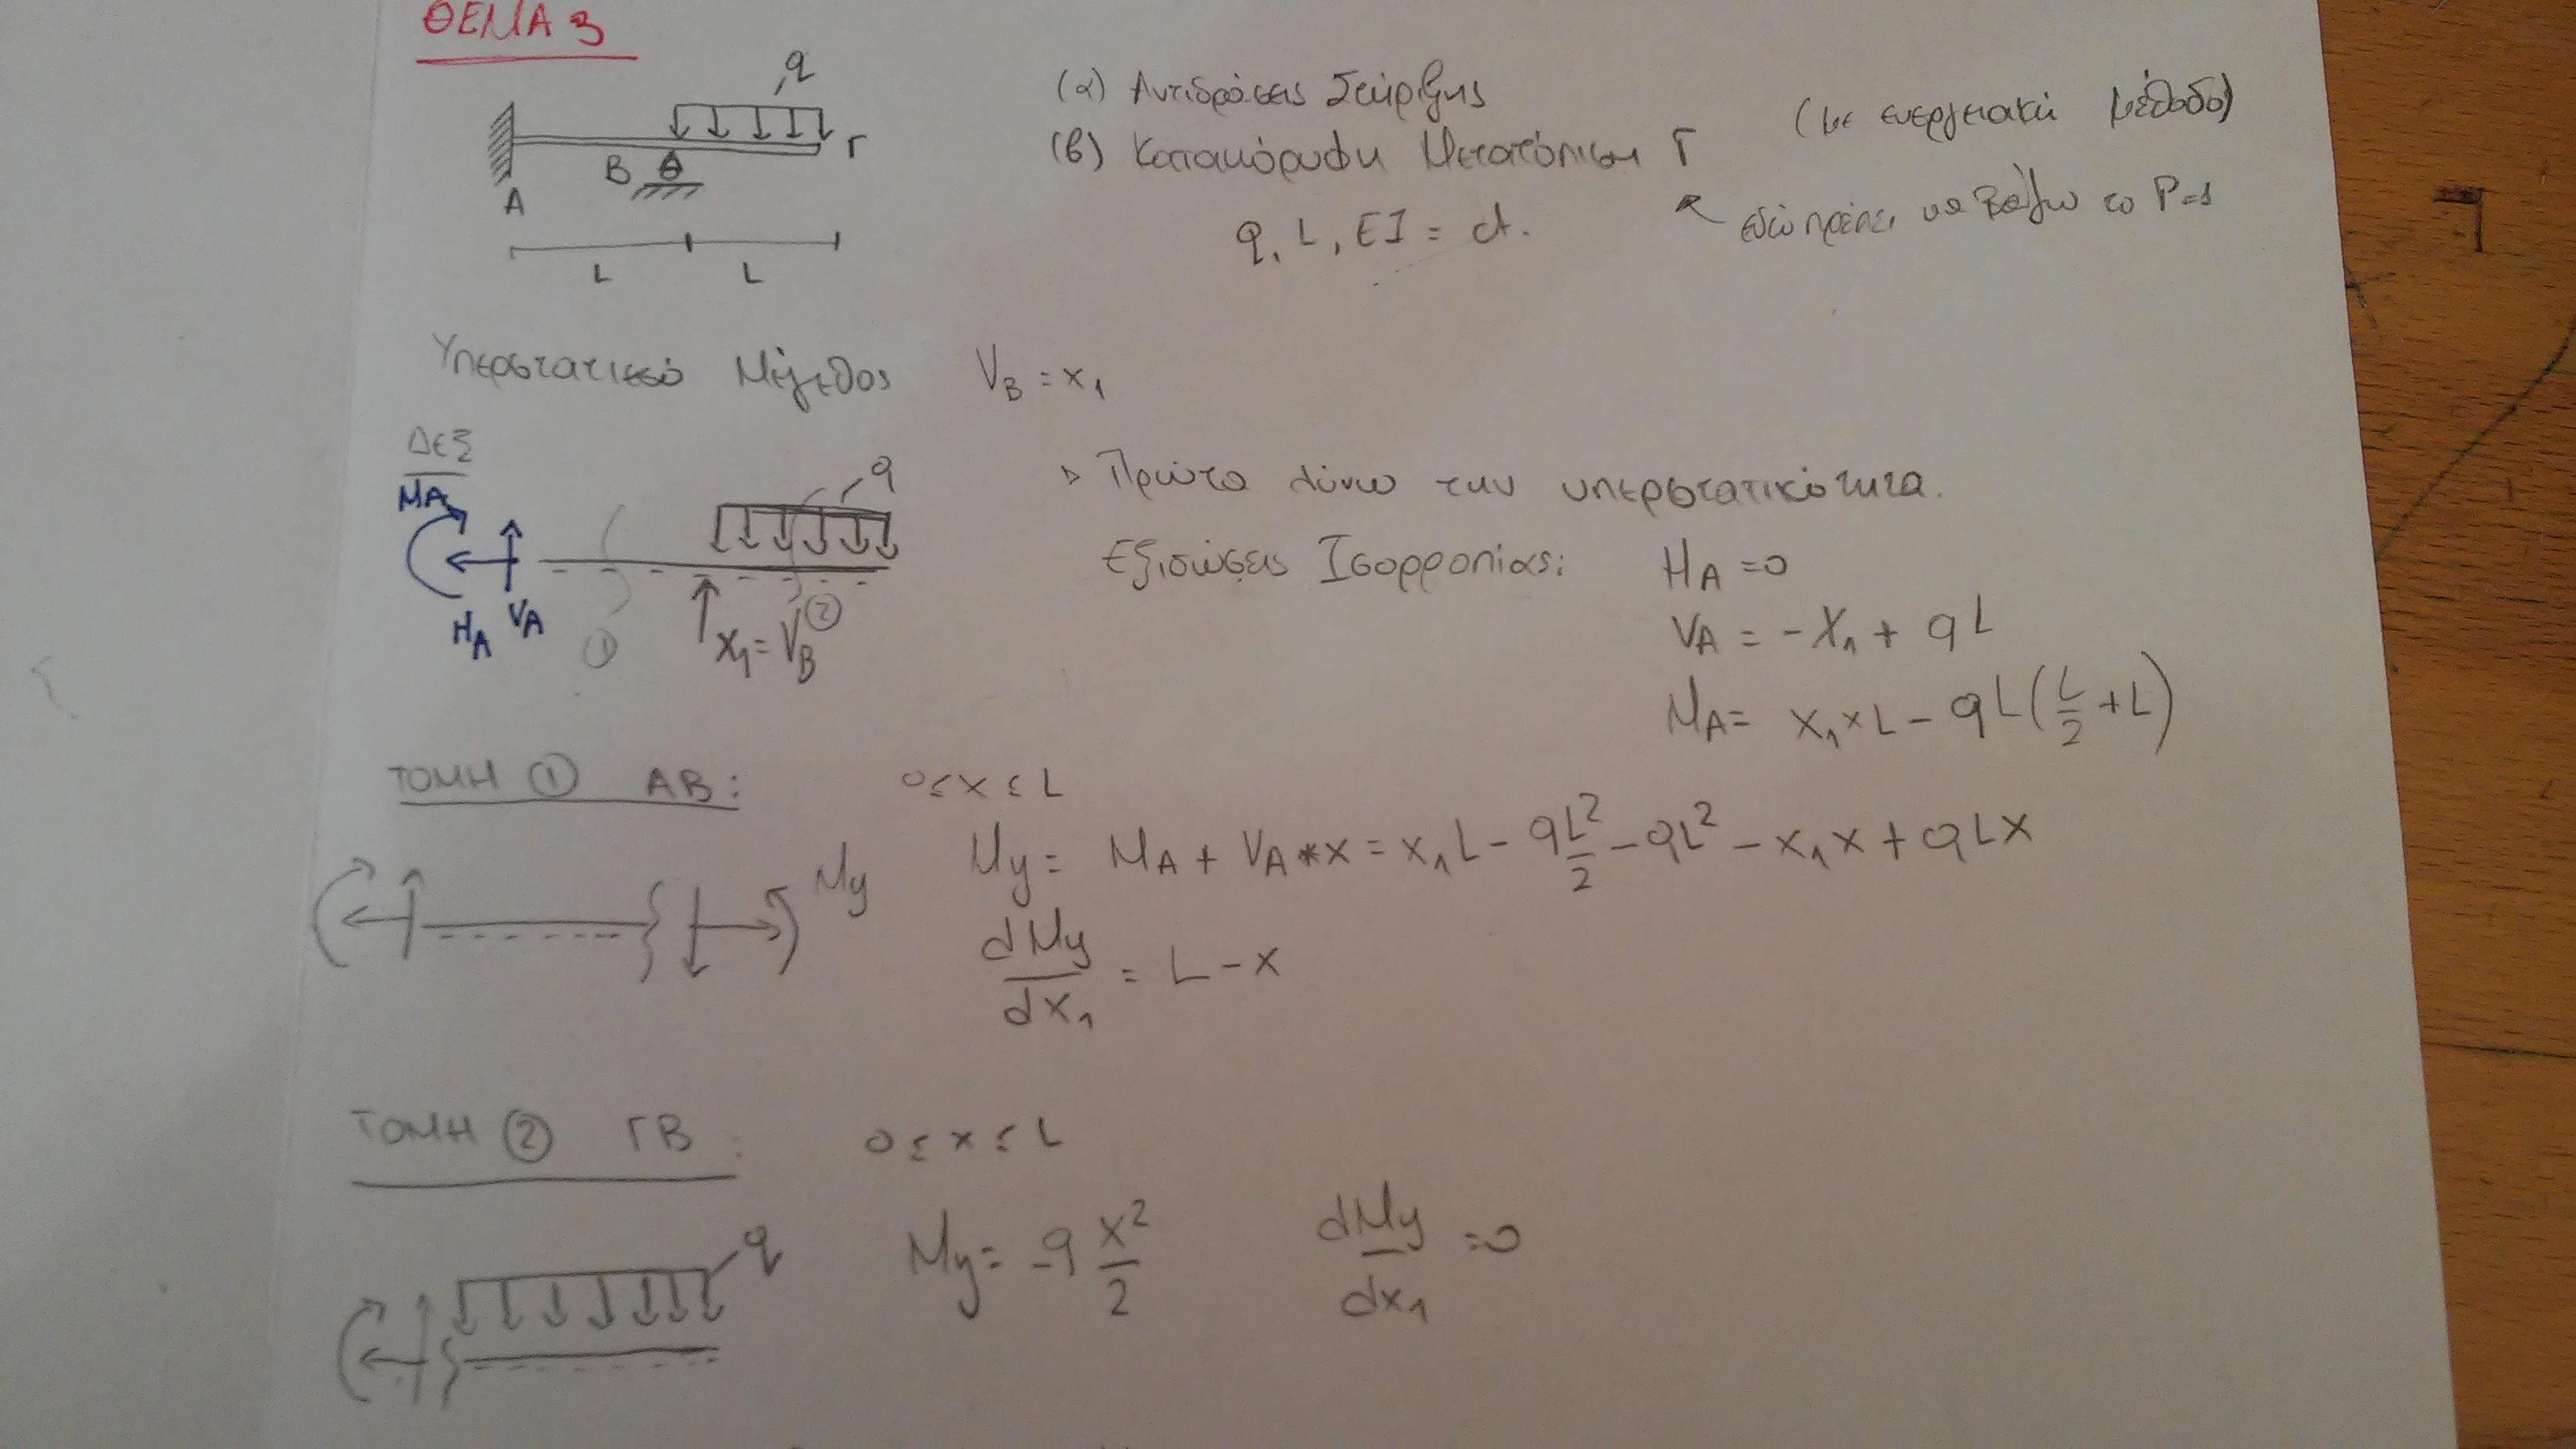 ΘΕΜΑ 3
q
Α
Β
Γ
L
L
(α) Αντιδράσεις Στήριξης
(β) Κατακόρυφη Μετατόπιση Γ
(με ενεργειακή μέθοδο)
εδώ πρέπει να βάλω το P=1
q, L, EI = ct.
Υπερστατικό Μέγεθος VB = x1
Δεξ
MA
HA
VA
q
①
②
x1 = VB
▹ Πρώτα λύνω την υπερστατικότητα.
Εξισώσεις Ισορροπίας: HA = 0
VA = -X1 + qL
MA = x1 × L - qL(L/2 + L)
ΤΟΜΗ ① ΑΒ: 0 ≤ x ≤ L
My = MA + VA * x = x1L - qL²/2 - qL² - x1x + qLx
My
dMy/dx1 = L - x
ΤΟΜΗ ② ΓΒ: 0 ≤ x ≤ L
q
My = -q x²/2 dMy/dx1 = 0